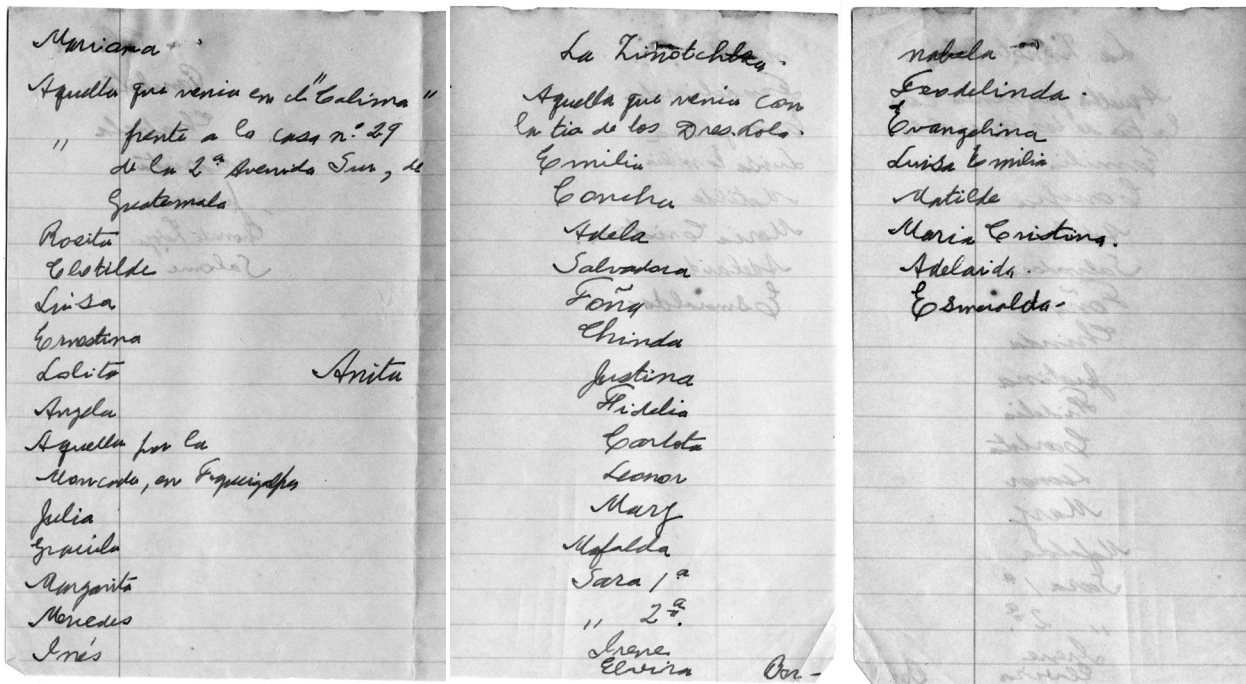 Mariana
Aquella que venia en el "Colima"
" frente a la casa nº 29
de la 2ª Avenida Sur, de
Guatemala
Rosita
Clotilde
Luisa
Ernestina
Lolita Anita
Angela
Aquella por la
Moncada, en Tegucigalpa
Julia
Graciela
Margarita
Mercedes
Inés
La
Aquella que venia con
la tia de los Dres. Lolo.
Emilia
Concha
Adela
Salvadora
Toña
Chinda
Justina
Fidelia
Carlota
Leonor
Mary
Mafalda
Sara 1ª
" 2ª.
Irene
Elvira
nabela
Teodelinda.
Evangelina
Luisa Emilia
Matilde
Maria Cristina.
Adelaida.
Esmeralda-